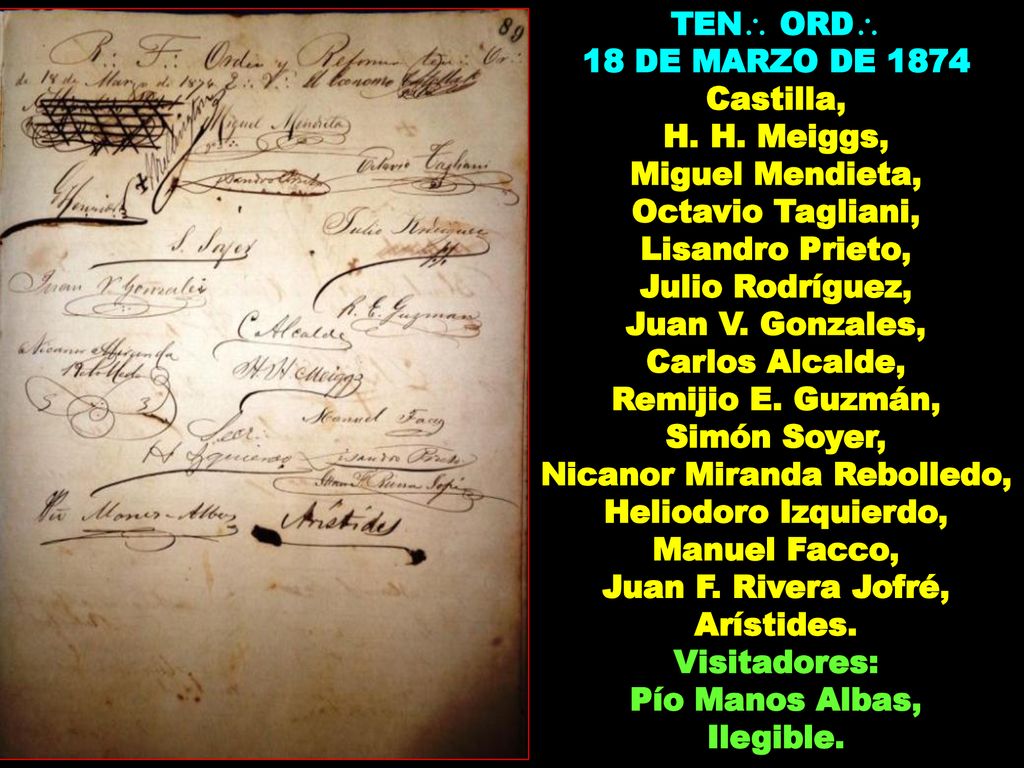 89
R∴ F∴ Orden y Reforma
de 18 de Marzo de 1874 El Economo
Miguel Mendieta
Octavio Tagliani
Julio Rodriguez
S. Soyer
Juan V Gonzales
R. E. Guzman
C Alcalde
Nicanor Miranda
Rebolledo
H H Meiggs
5 3
Manuel Facco
Secr∴
H Izquierdo
Lisandro Prieto
Juan F Rivera Jofré
Manos-Albas
Arístides
TEN∴ ORD∴
18 DE MARZO DE 1874
Castilla,
H. H. Meiggs,
Miguel Mendieta,
Octavio Tagliani,
Lisandro Prieto,
Julio Rodríguez,
Juan V. Gonzales,
Carlos Alcalde,
Remijio E. Guzmán,
Simón Soyer,
Nicanor Miranda Rebolledo,
Heliodoro Izquierdo,
Manuel Facco,
Juan F. Rivera Jofré,
Arístides.
Visitadores:
Pío Manos Albas,
Ilegible.